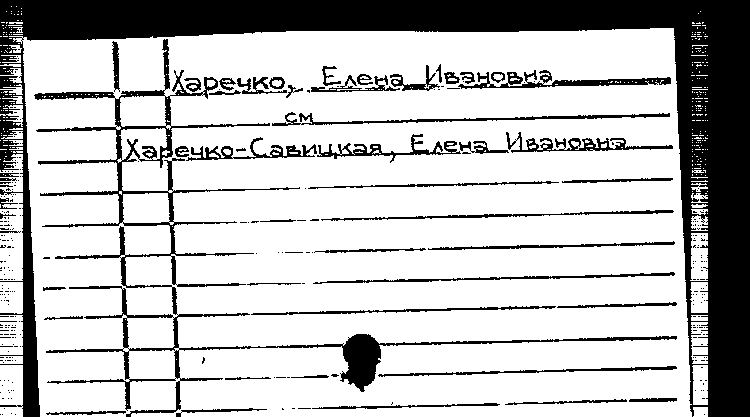 Харечко, Елена Ивановна
см
Харечко-Савицкая, Елена Ивановна